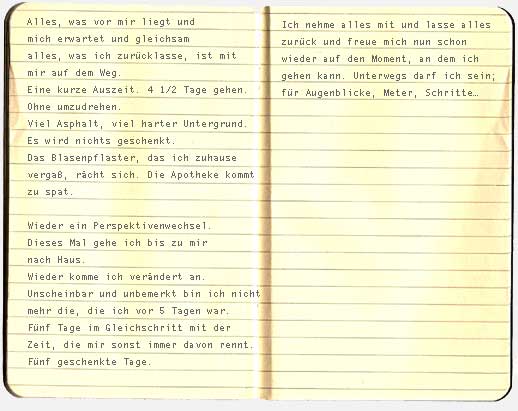 Alles, was vor mir liegt und
mich erwartet und gleichsam
alles, was ich zurücklasse, ist mit
mir auf dem Weg.
Eine kurze Auszeit. 4 1/2 Tage gehen.
Ohne umzudrehen.
Viel Asphalt, viel harter Untergrund.
Es wird nichts geschenkt.
Das Blasenpflaster, das ich zuhause
vergaß, rächt sich. Die Apotheke kommt
zu spät.
Wieder ein Perspektivenwechsel.
Dieses Mal gehe ich bis zu mir
nach Haus.
Wieder komme ich verändert an.
Unscheinbar und unbemerkt bin ich nicht
mehr die, die ich vor 5 Tagen war.
Fünf Tage im Gleichschritt mit der
Zeit, die mir sonst immer davon rennt.
Fünf geschenkte Tage.
Ich nehme alles mit und lasse alles
zurück und freue mich nun schon
wieder auf den Moment, an dem ich
gehen kann. Unterwegs darf ich sein;
für Augenblicke, Meter, Schritte…